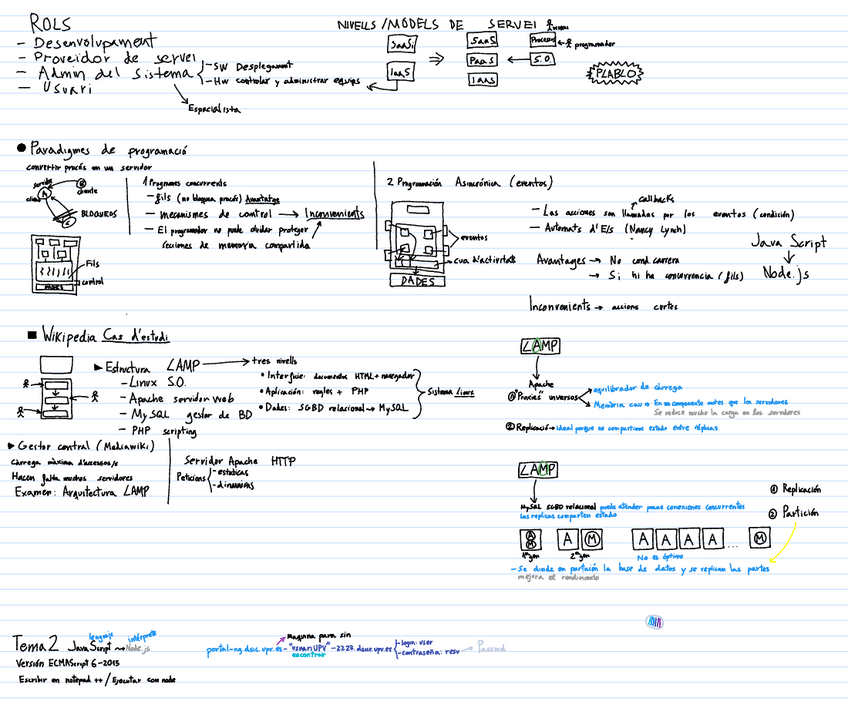 ROLS
- Desenvolupament
- Proveidor de servei
- Admin del sistema
- SW Desplegament
- HW controlar y administrar equips
- Usuari
Especialista
NIVELLS/MODELS DE SERVEI
SaaS
IaaS
SaaS
PaaS
IaaS
Proceso
S.O.
programador
PLABLO
Paradigmes de programació
convertir procés en un servidor
servidor
cliente
A
B
C
BLOQUEOS
Fils
control
DADES
1 Programes concurrents
- fils (no bloquea procés) Avantatges
- mecanismes de control → Inconvenients
- El programador no puede olvidar proteger
secciones de memoria compartida
2 Programación Asincrónica (eventos)
eventos
cua d'activitats
DADES
callbacks
- Las acciones son llamadas por los eventos (condición)
- Automats d'E/S (Nancy Lynch)
Avantages → No cond. carrera
→ Si hi ha concurrencia (fils)
Inconvenients → accions curtes
Java Script
Node.js
Wikipedia Cas d'estudi
Estructura LAMP → tres nivells
- Linux S.O.
- Apache servidor web
- MySQL gestor de BD
- PHP scripting
• Interficie: documentos HTML + navegador
• Aplicación: reglas + PHP
• Dades: SGBD relacional → MySQL
Sistema Linux
Gestor central (Mediawiki)
Càrrega màxima d'accessos/s
Hacen falta muchos servidores
Examen: Arquitectura LAMP
Servidor Apache HTTP
Peticions
- estáticas
- dinamicas
LAMP
Apache
① "Proxies" inversos
equilibrador de càrrega
Memoria cau → En un componente antes que los servidores
Se reduce mucho la carga en los servidores
② Replicació → Ideal porque no compartimos estado entre réplicas
LAMP
MySQL SGBD relacional puede atender pocas conexiones concurrentes
las replicas comparten estado
① Replicación
② Partición
A
M
1ª gen
A M
2ª gen
A A A A ... M
No es óptimo
- Se divide en partición la base de datos y se replican las partes
mejora el rendimiento
Tema 2 JavaScript → Node.js
lenguaje
intérprete
Versión ECMAScript 6 - 2015
Escribir en notepad ++ / Ejecutar con node
Maquina para sin
portal-ng.dsic.upv.es - "usuariUPV" - 2228.dsic.upv.es
encontrar
- login: user
- contraseña: resu → Passwd